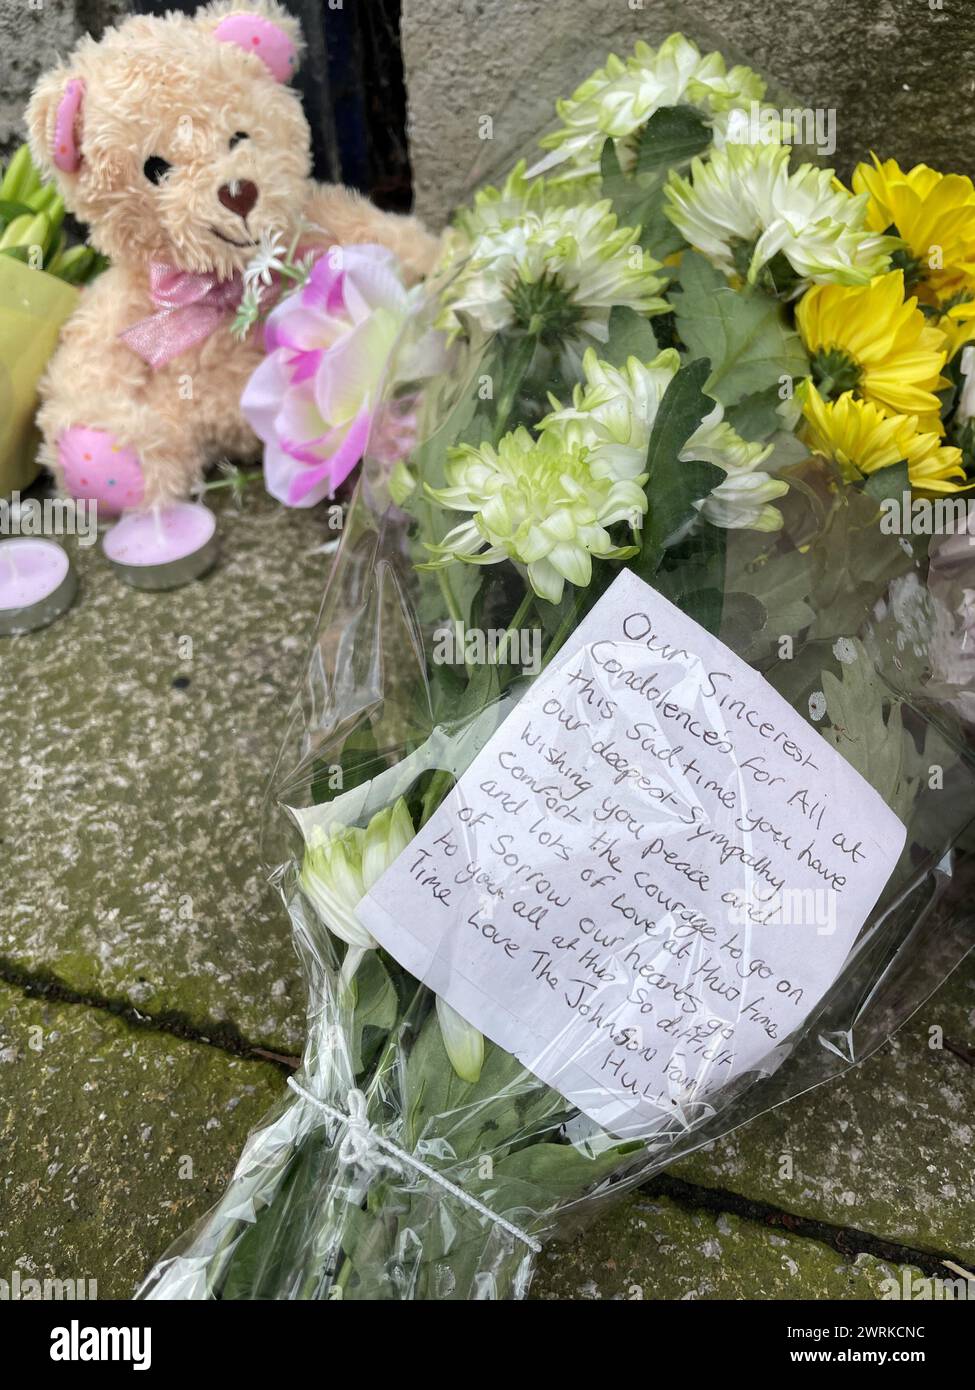 Our Sincerest
Condolences for All at
this sad time you have
our deepest sympathy
wishing you peace and
comfort the courage to go on
and lots of love at this time
of sorrow our hearts go
to you all at this so difficlt
Time Love The Johnson Family
HULL
alamy
Image ID: 2WRKCNC
www.alamy.com